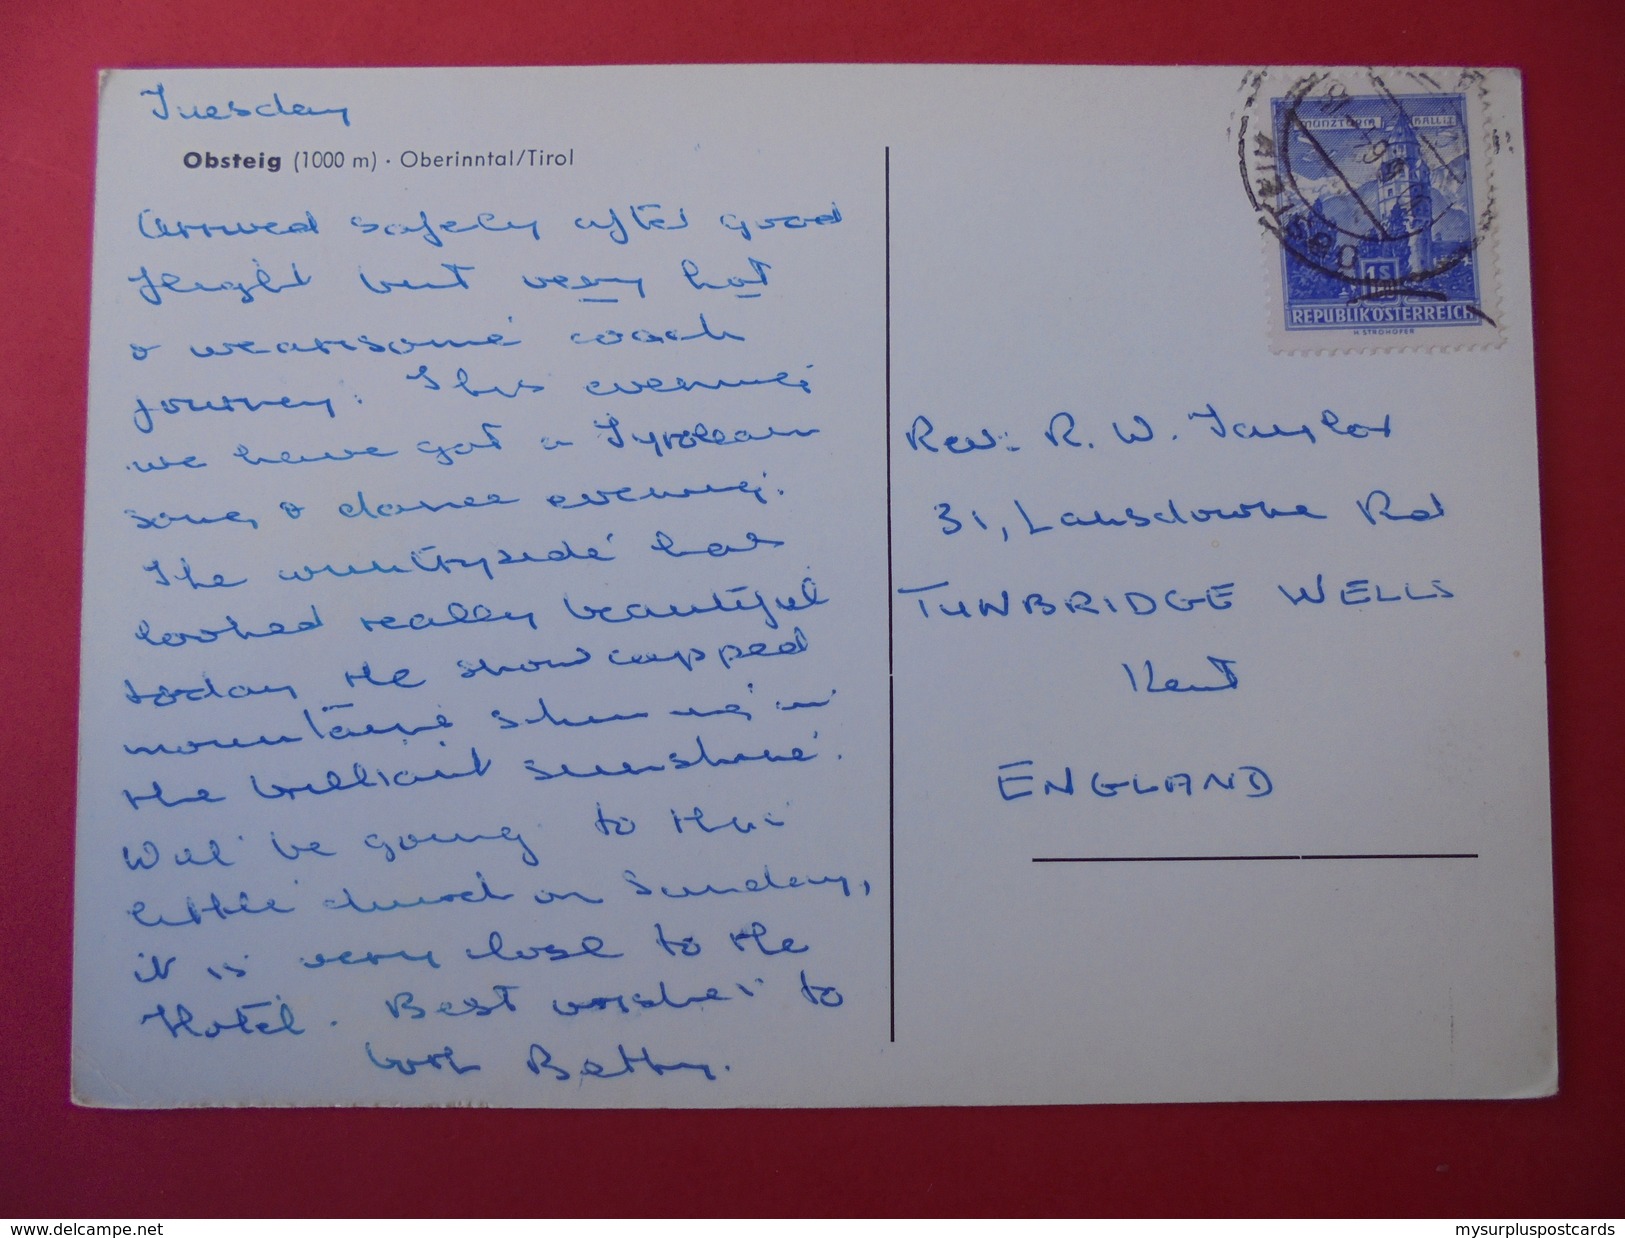 Tuesday
Obsteig (1000 m) · Oberinntal/Tirol
Arrived safely after good
flight but very hot
& wearisome coach
journey. This evening
we have got a Tyrolean
song & dance evening.
The countryside has
looked really beautiful
today the snow capped
mountains shining in
the brilliant sunshine.
Will be going to the
little church on Sunday,
it is very close to the
Hotel. Best wishes to
both Betty.
MÜNZTURM HALL i.T.
1S
REPUBLIK ÖSTERREICH
H. STROHOFER
OBSTEIG
Rev. R. W. Taylor
31, Lansdowne Rd
TUNBRIDGE WELLS
Kent
ENGLAND
www.delcampe.net
mysurpluspostcards